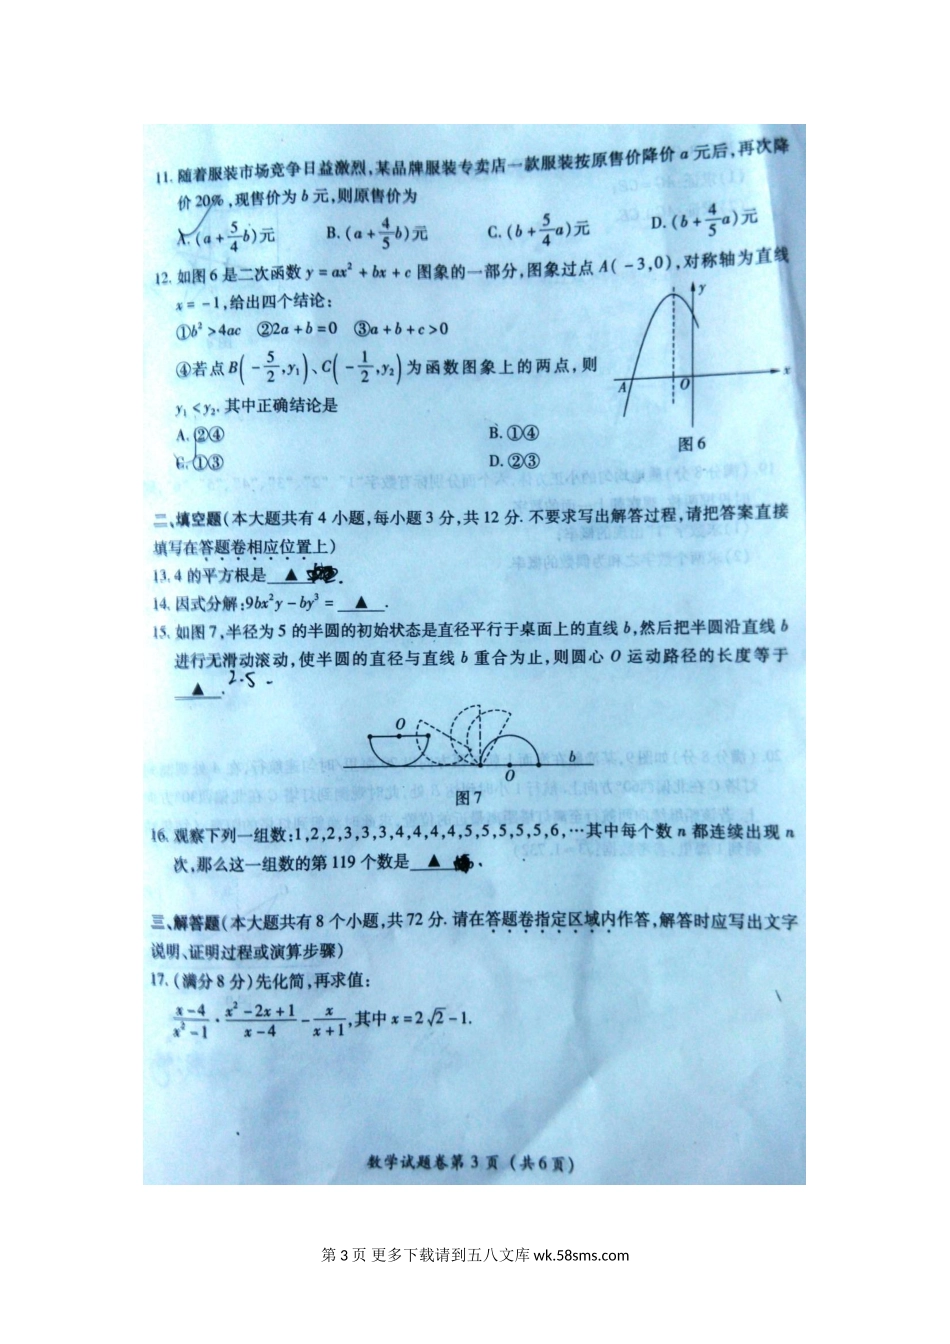 11. 随着服装市场竞争日益激烈,某品牌服装专卖店一款服装按原售价降价 a 元后,再次降
价 20%,现售价为 b 元,则原售价为
A. (a + 5/4 b)元 B. (a + 4/5 b)元 C. (b + 5/4 a)元 D. (b + 4/5 a)元
12. 如图 6 是二次函数 y = ax² + bx + c 图象的一部分,图象过点 A( -3,0),对称轴为直线
x = -1,给出四个结论:
①b² > 4ac ②2a + b = 0 ③a + b + c > 0
④若点 B( -5/2, y₁)、C( -1/2, y₂)为函数图象上的两点,则
y₁ < y₂. 其中正确结论是
A. ②④ B. ①④
C. ①③ D. ②③
y
x
A
O
图 6
二、填空题(本大题共有 4 小题,每小题 3 分,共 12 分. 不要求写出解答过程,请把答案直接
填写在答题卷相应位置上)
13. 4 的平方根是 ▲ .
14. 因式分解:9bx²y - by³ = ▲ .
15. 如图 7,半径为 5 的半圆的初始状态是直径平行于桌面上的直线 b,然后把半圆沿直线 b
进行无滑动滚动,使半圆的直径与直线 b 重合为止,则圆心 O 运动路径的长度等于
▲ . 2.5
O
O
b
图 7
16. 观察下列一组数:1,2,2,3,3,3,4,4,4,4,5,5,5,5,5,6,…其中每个数 n 都连续出现 n
次,那么这一组数的第 119 个数是 ▲ .
三、解答题(本大题共有 8 个小题,共 72 分. 请在答题卷指定区域内作答,解答时应写出文字
说明、证明过程或演算步骤)
17. (满分 8 分)先化简,再求值:
(x-4)/(x²-1) · (x²-2x+1)/(x-4) - x/(x+1),其中 x = 2√2 - 1.
数学试题卷第 3 页 (共 6 页)
第 3 页 更多下载请到五八文库 wk.58sms.com